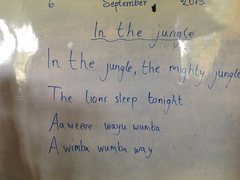 6 September 2013
In the jungle
In the jungle, the mighty jungle
The lions sleep tonight
Aaweeee wayu wumba
A wimba wumba way